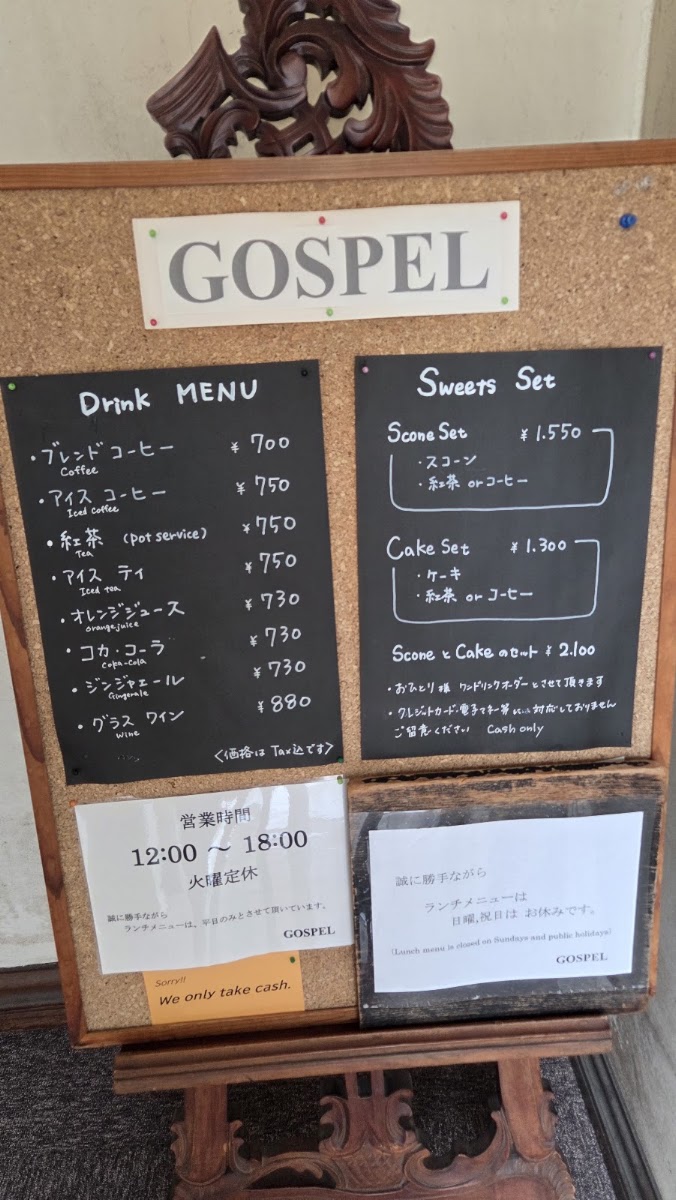 GOSPEL
Drink MENU
・ブレンドコーヒー ¥ 700
Coffee
・アイス コーヒー ¥ 750
Iced coffee
・紅茶 (pot service) ¥ 750
Tea
・アイス ティ ¥ 750
Iced tea
・オレンジジュース ¥ 730
orange juice
・コカ・コーラ ¥ 730
Coka-Cola
・ジンジャエール ¥ 730
Gingerale
・グラス ワイン ¥ 880
Wine
<価格は Tax込です>
Sweets Set
Scone Set ¥ 1.550
・スコーン
・紅茶 orコーヒー
Cake Set ¥ 1.300
・ケーキ
・紅茶 or コーヒー
Scone と Cake のセット ¥ 2.100
・おひとり様 ワンドリンクオーダーとさせて頂きます
・クレジットカード・電子マネー等 対応しておりません
ご留意ください Cash only
営業時間
12:00 ～ 18:00
火曜定休
誠に勝手ながら
ランチメニューは、平日のみとさせて頂いています。
GOSPEL
Sorry!!
We only take cash.
誠に勝手ながら
ランチメニューは
日曜,祝日は お休みです。
(Lunch menu is closed on Sundays and public holidays)
GOSPEL